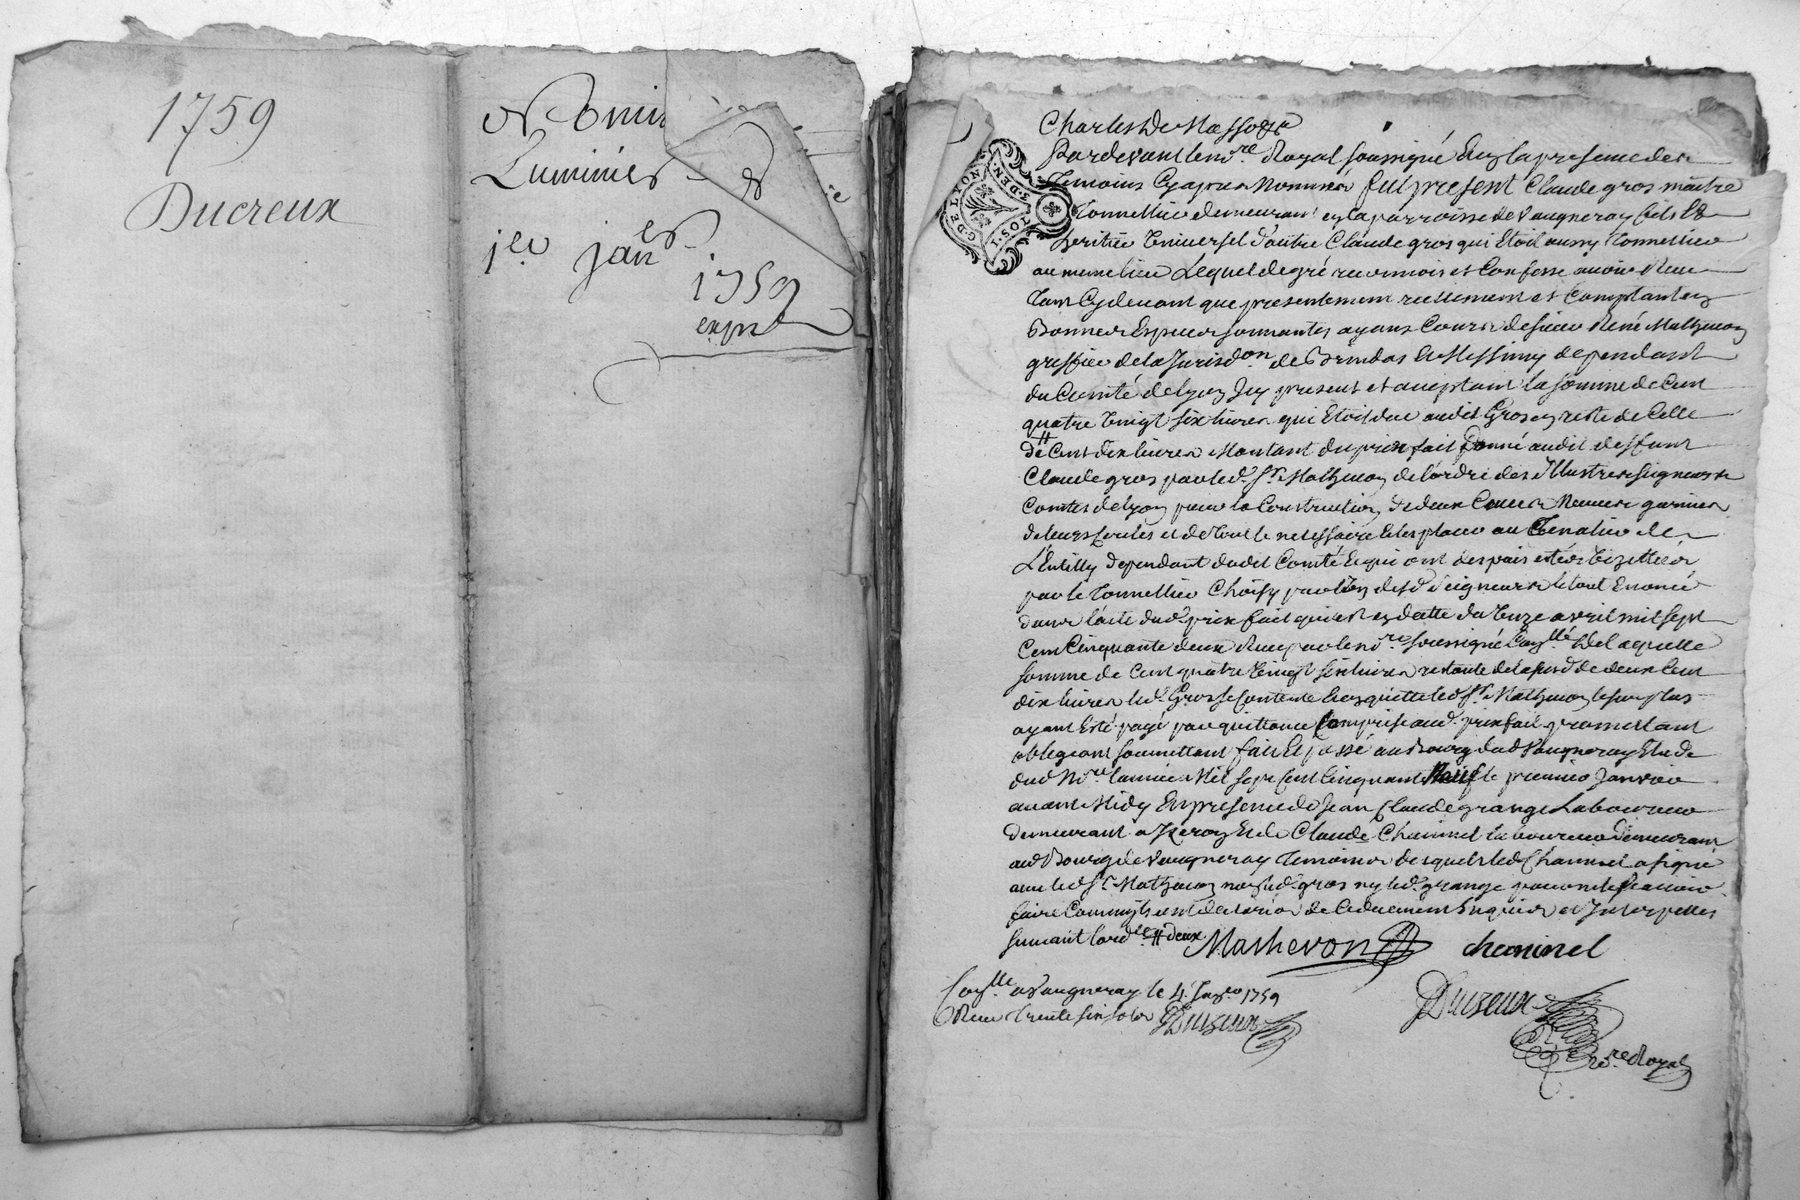 1759
Ducreux
Luminier
1er janer
1759
expé
Charles De Masso
Pardevant le nore Royal soussigné En la presence des
Temoins Cyapres Nommés fut present Claude gros maitre
Tonnellier demeurant en la parroisse de Vaugneray fils Et
heritier Universel d'autre Claude gros qui Etoit aussy Tonnellier
au meme lieu Lequel de gré reconnoit et Confesse avoir Reçu
tant Cydevant que presentement reellement et Comptant en
Bonnes Especes sonnantes ayant Cours de sieur René Mathevon
greffier de la Jurisdon de Brindas Et Messimy dependant
du Comté de Lyon Icy present et acceptant la somme de Cent
quatre Vingt six livres qui Etoit due audit Gros en reste de Celle
de # Cent dix livres Montant du prix fait Donné audit deffunt
Claude gros par led. Sr. Mathevon de l'ordre des Illustres seigneurs
Comtes de Lyon pour la Construction de deux Cuves Neuves garnies
de leurs Cercles et de tout le necessaire Et les placer au Tenalier de
L'Entilly dependant dudit Comté Et qui ont depuis
par le Tonnellier Choisy par desd. seigneurs le tout Enoncé
dans l'acte dud. prix fait qui est en datte du Onze avril mil sept
Cent Cinquante deux Reçu par le nore soussigné Conllé De laquelle
somme de Cent quatre Vingt six livres restante de celle de deux Cent
dix livres led. Gros se Contente Et en quitte led. Sr. Mathevon le surplus
ayant Eté payé par quittance Comprise aud. prix fait promettant
obligeant soumettant fait Et passé au Bourg dud. Vaugneray Etude
dud. Nore l'année Mil sept Cent Cinquante Neuf le premier Janvier
avant Midy En presence de Jean Claude grange Laboureur
demeurant a Yzeron Et de Claude Cheminel laboureur demeurant
aud. Bourg de Vaugneray Temoins desquels led. Cheminel a signé
avec led. Sr. Mathevon non led. gros ny led. grange pour ne le scavoir
faire Comme ils ont declaré de ce duement Enquis et Interpellés
suivant l'ordce # deux Mathevon cheminel
Conlle a Vaugneray le 4. Janer 1759
Reçu trente six sols Ducreux
Ducreux
nore Royal